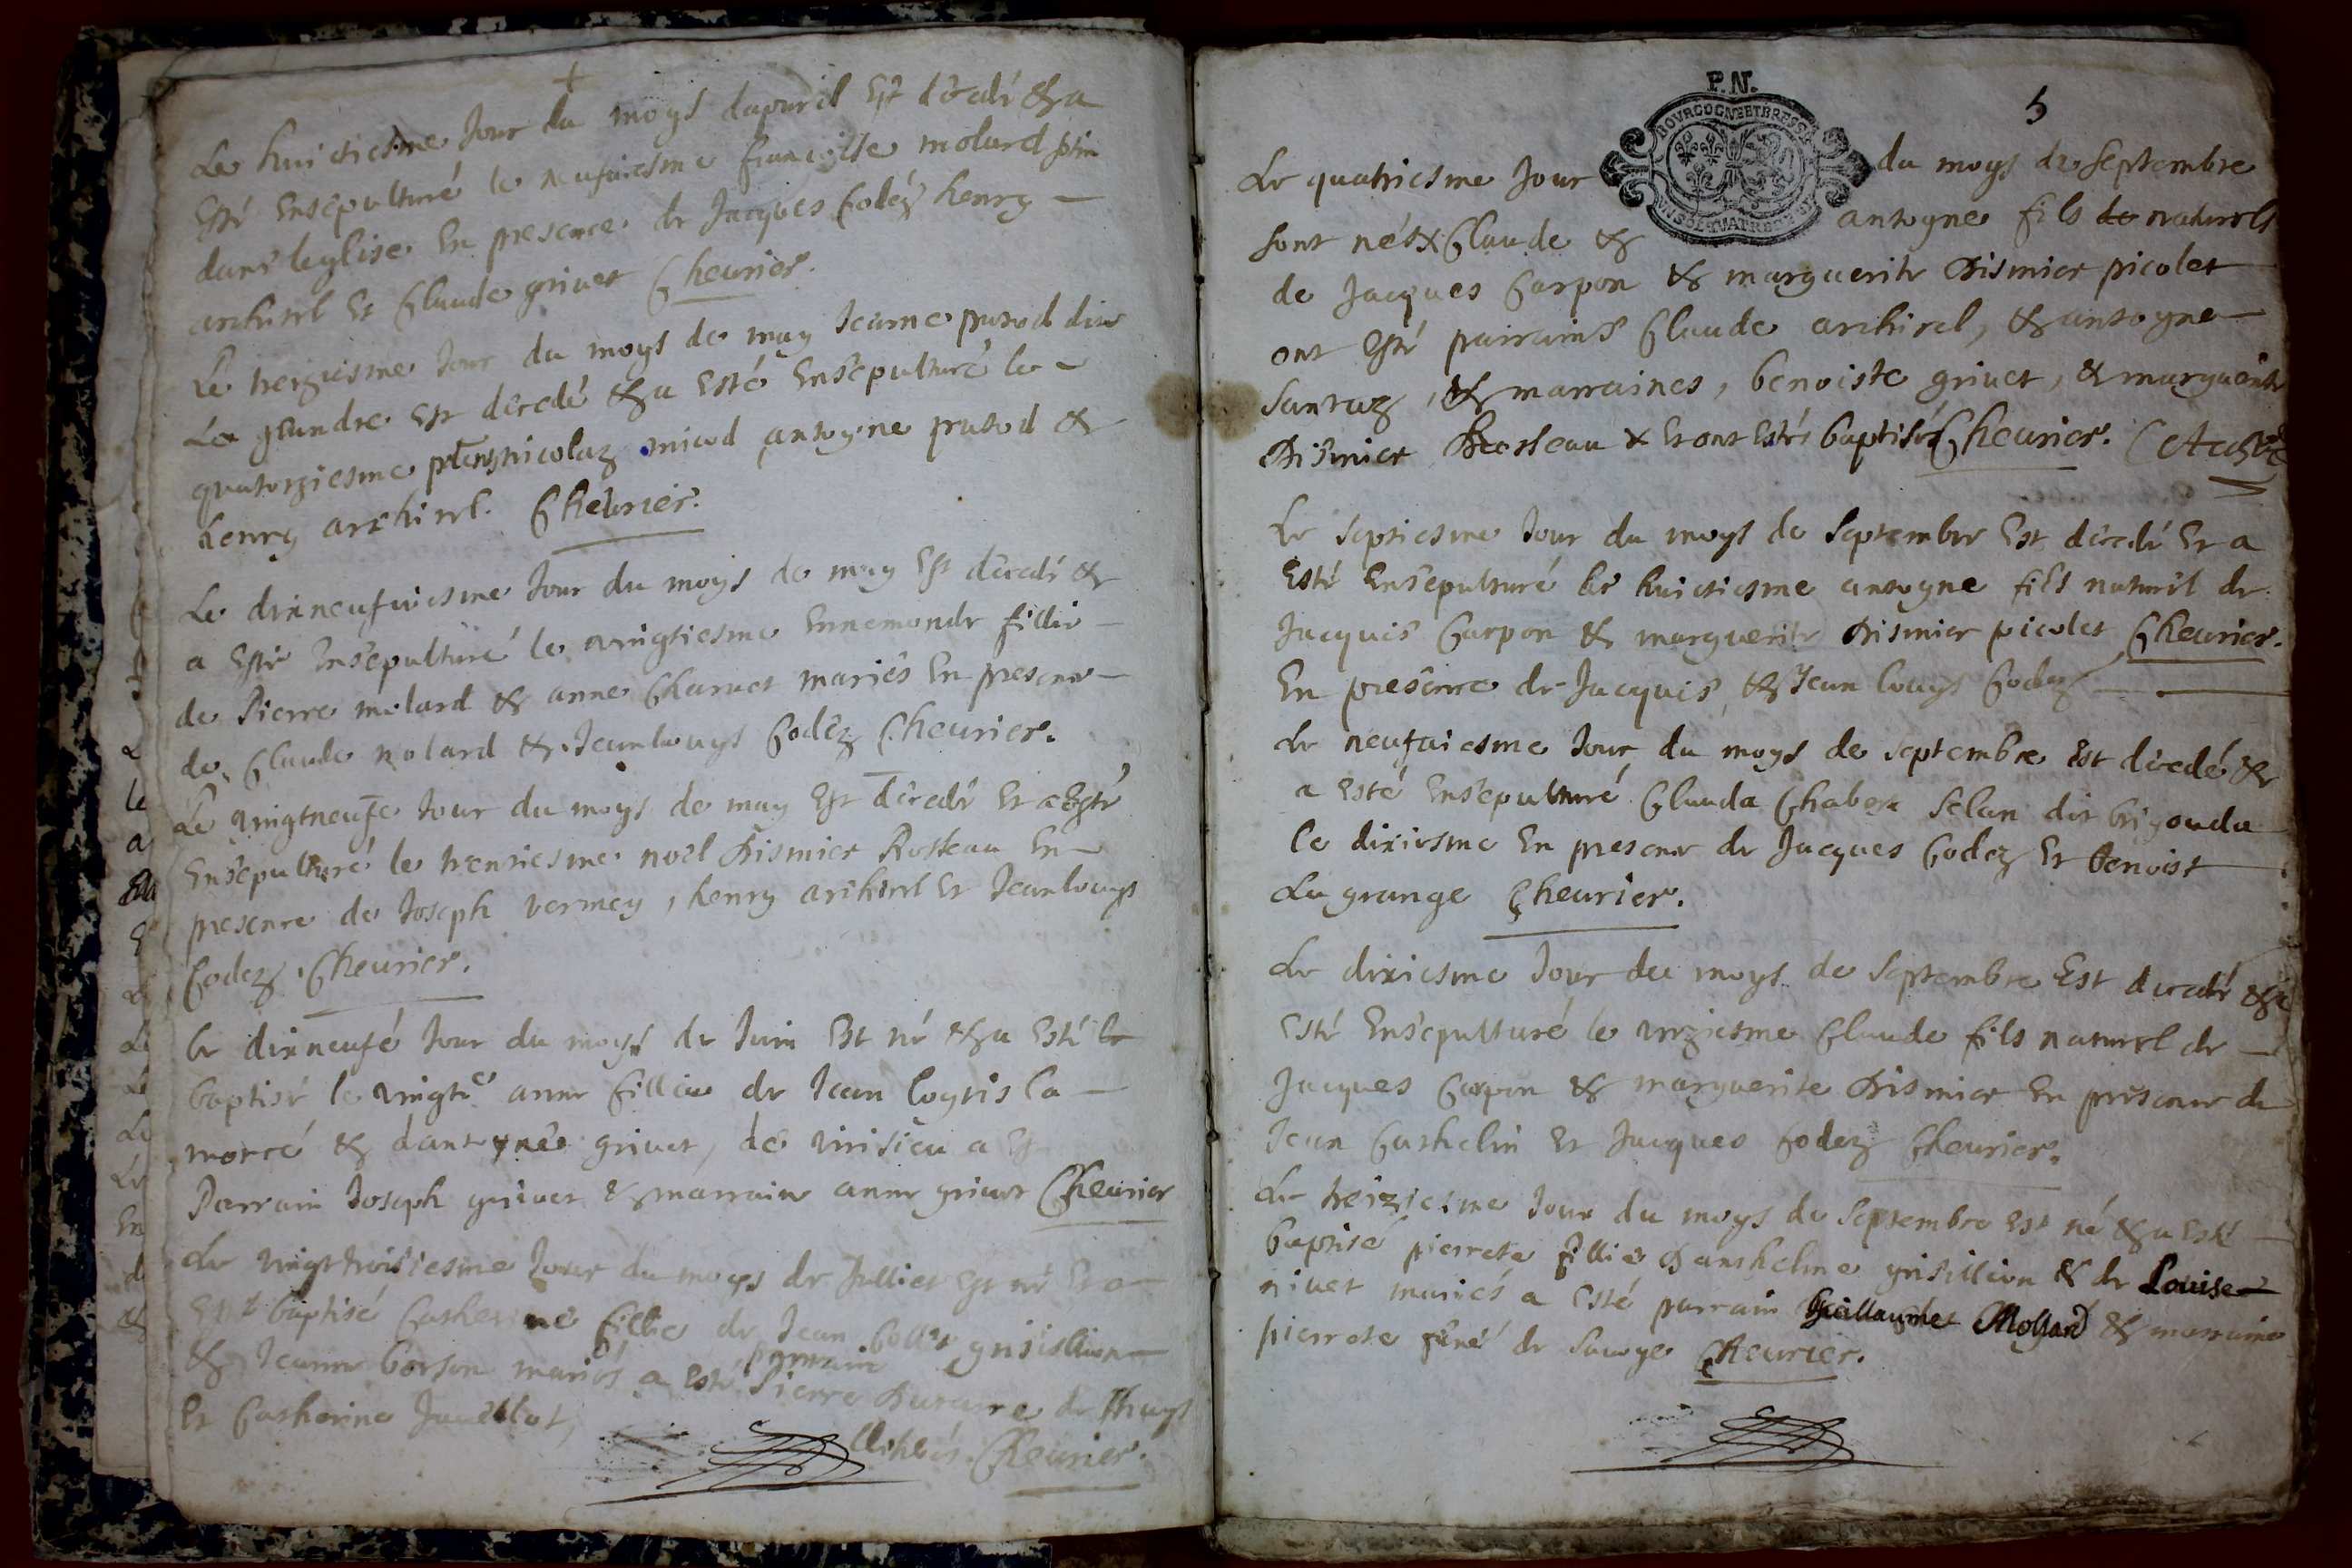 +
Le huictiesme Jour du moys dapuril Est decedé & a
Esté Ensepulturé le neufuiesme francoise molard
dans leglise En presence de Jacques Codéz henry
archirel Et Claude griuet Cheurier.
Le treiziesme Jour du moys de may Jeanne prutod dite
La grandre Est decedé & a Esté Ensepulturé le
quatorziesme nicolaz miod antoyne prutod &
henry archirel. Cheurier.
Le dixneufuiesme Jour du moys de may Est decedé &
a Esté Ensepulturé le vingtiesme Ennemonde fillie
de Pierre molard & anne Charuet mariés En presence
de Claude molard & Jeanlouys Codéz Cheurier.
Le vingtneufe Jour du moys de may Est decedé Et a Esté
Ensepulturé le trentiesme noel Dismier Rosseau En
presence de Joseph vermey, henry archirel Et Jeanlouys
Codez. Cheurier.
le dixneufé Jour du moys de Juin Est né & a Esté
baptisé le vingte anne fillie de Jean louis la
morcé & dantoyne griuet, de virisieu a Es
Parrain Joseph griuet & marraine anne griuet Cheurier
Le vingttroisiesme Jour du moys de Jullier Est né Et a
Esté baptisé Catherine fillie de Jean grisillion
& Jeanne borson mariés a Esté parrain Pierre de Thuys
Et Catherine Jauellot,
Cheurier.
5
P.N.
BOVRGOGNE ET BRESSE
Le quatriesme Jour du moys de Septembre
sont nés x Claude & antoyne fils de naturels
de Jacques Carpon & marguerite Dismier picolet
ont Esté parrains Claude archirel, & antoyne
Santaz, & marraines, benoiste griuet, & marguerite
Dismier Rosseau x Et ont Estés baptisés Cheurier.
Le septiesme Jour du moys de Septembre Est decedé Et a
Esté Ensepulturé le huictiesme antoyne fils naturel de
Jacques Carpon & marguerite Dismier picolet Cheurier.
En presence de Jacques, & Jean louys Codez
Le neufuiesme Jour du moys de septembre Est decedé &
a Esté Ensepulturé Clauda Chabert Selan dit brigouda
le dixiesme En presence de Jacques Codez Et benoist
La grange Cheurier.
Le dixiesme Jour du moys de Septembre Est decedé & a
Esté Ensepulturé le vnziesme Claude fils naturel de
Jacques Carpon & marguerite Dismier En presence de
Jean Cathelin Et Jacques Codez Cheurier.
Le treiziesme Jour du moys de Septembre est né & a Esté
baptisé pierrete fillie Danthelme grisillion & de Louise
niuet mariés a Esté parrain Guillaume Mollard & marraine
pierrete de Cheurier.